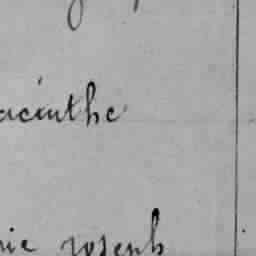 acinthe
rie joseph